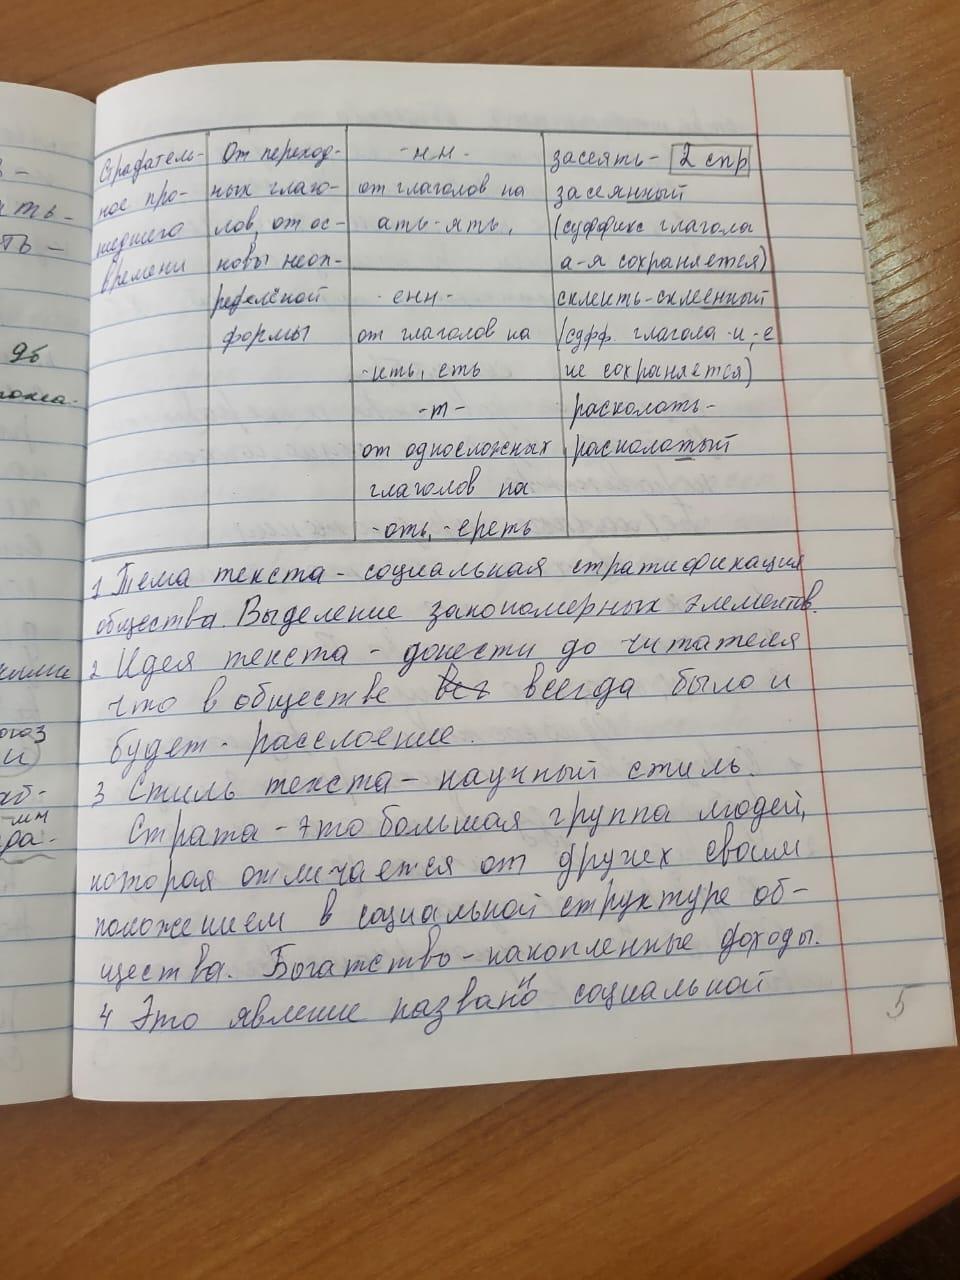 Страдатель-
ное про-
шедшего
времени
От переход-
ных глаго-
лов, от ос-
новы неоп-
ределёной
формы
-нн-
от глаголов на
ать-ять,
засеять- 2 спр
засеянный
(суффикс глагола
а-я сохраняется)
-енн-
от глаголов на
-ить, еть
склеить-склеенный
(суфф. глагола -и, -е
не сохраняется)
-т-
от односложных
глаголов на
-оть, -ереть
расколоть-
расколотый
1 Тема текста - социальная стратификация
общества. Выделение закономерных элементов.
2 Идея текста - донести до читателя
что в обществе всегда было и
будет - расслоение.
3 Стиль текста - научный стиль.
Страта - это большая группа людей,
которая отличается от других своим
положением в социальной структуре об-
щества. Богатство - накопленные доходы.
4 Это явление названо социальной
5